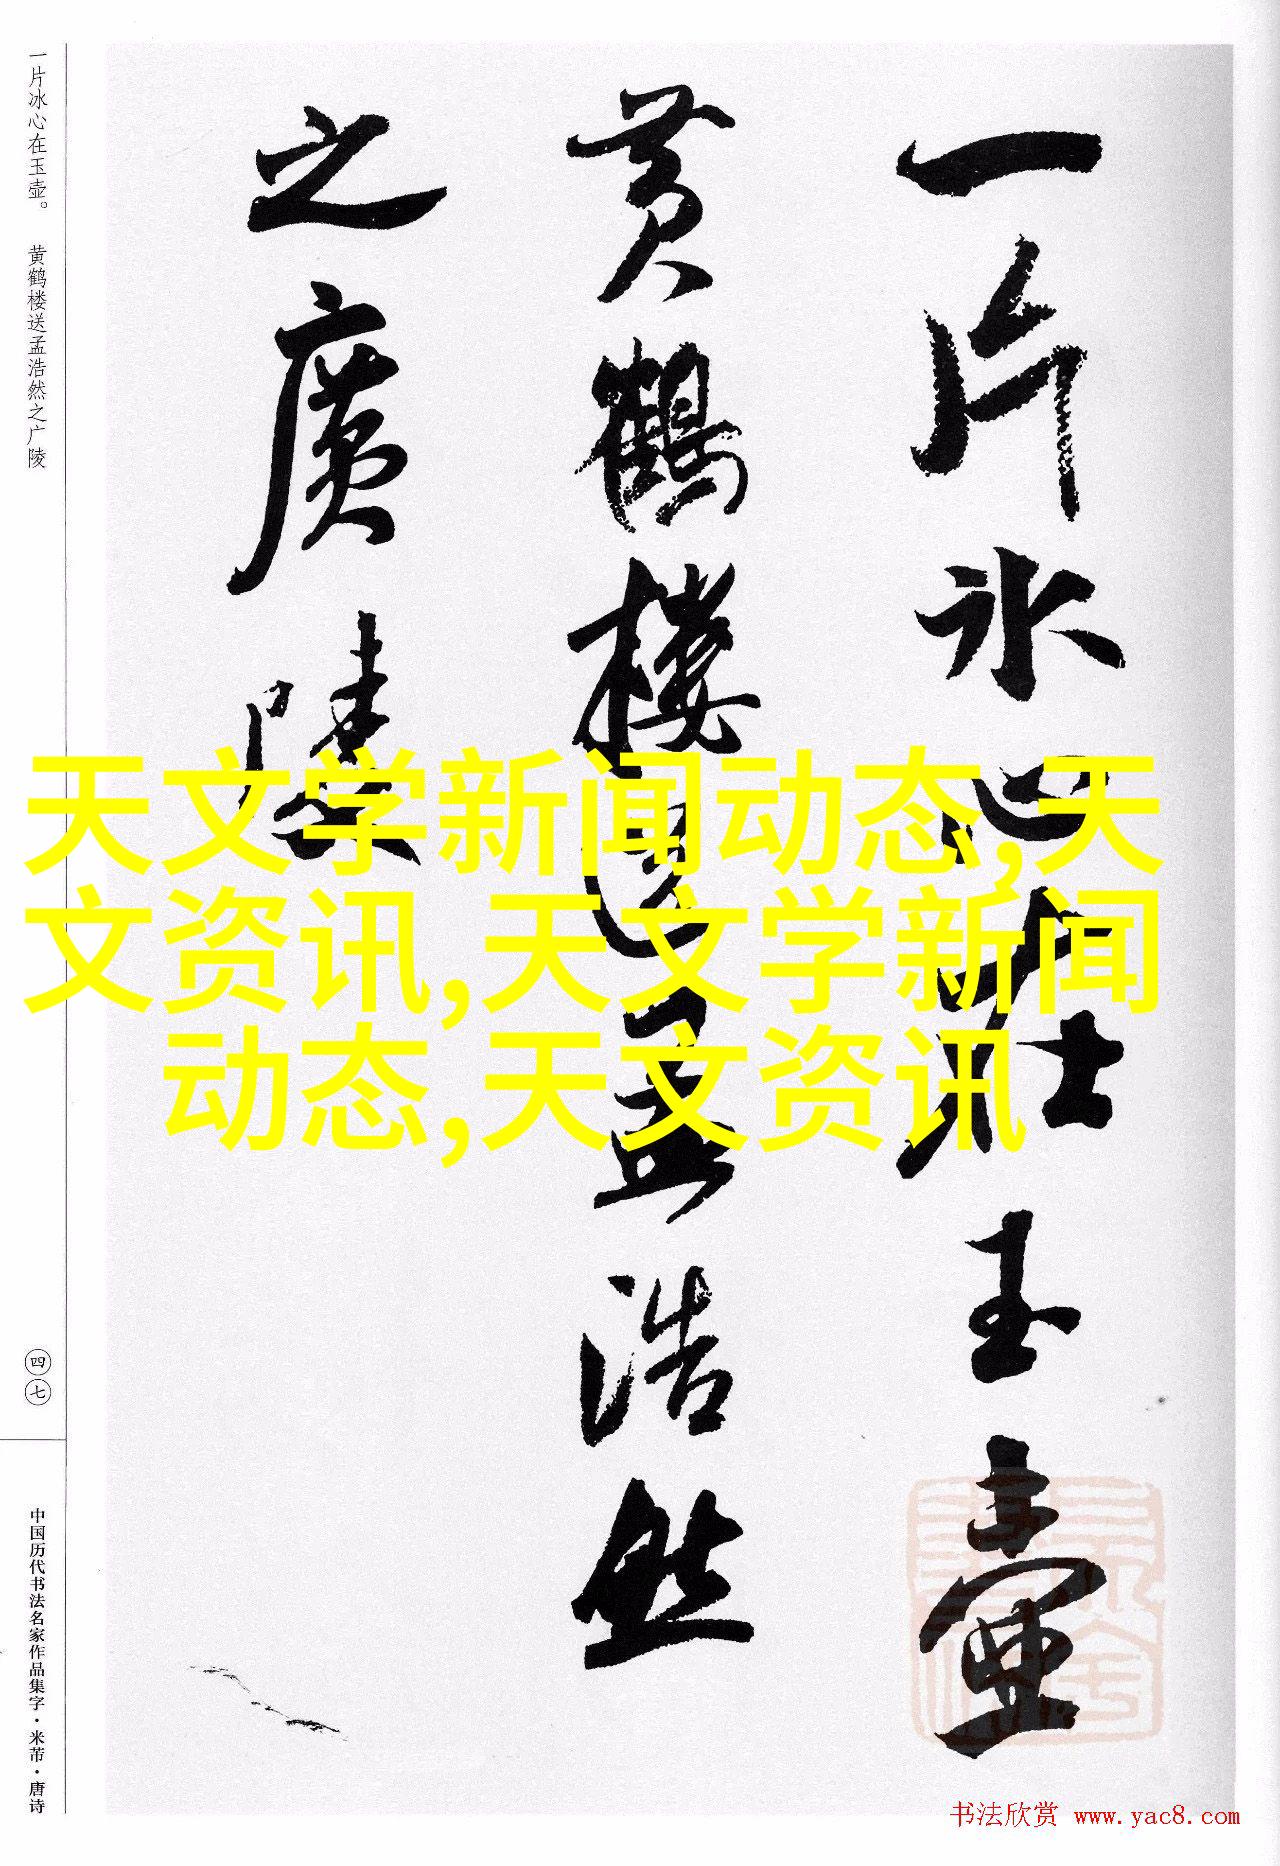 一片冰心在玉壶
黄鹤楼送孟浩然
之廣陵
一片冰心在玉壶。 黄鹤楼送孟浩然之广陵
四七
中国历代书法名家作品集字·米芾·唐诗
天文学新闻动态,天
文资讯,天文学新闻
动态,天文资讯
书法欣赏 www.yac8.com